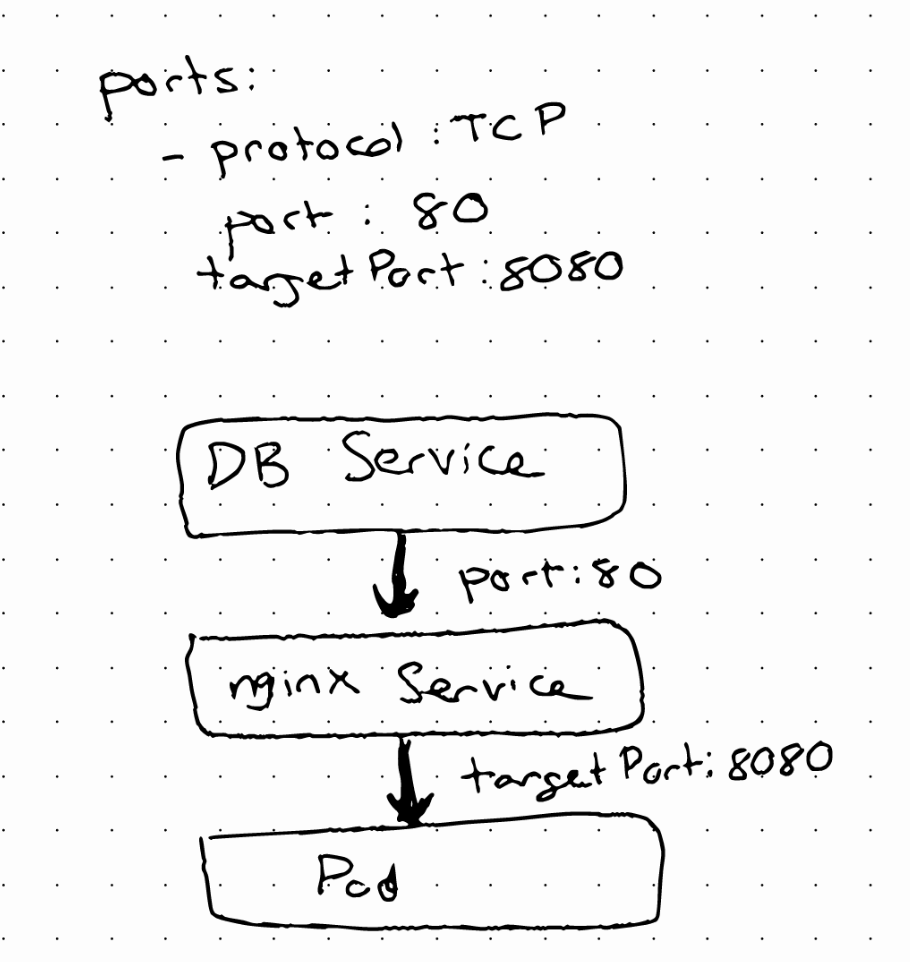 ports:
- protocol : TCP
port : 80
targetPort : 8080
DB Service
port: 80
nginx Service
targetPort: 8080
Pod